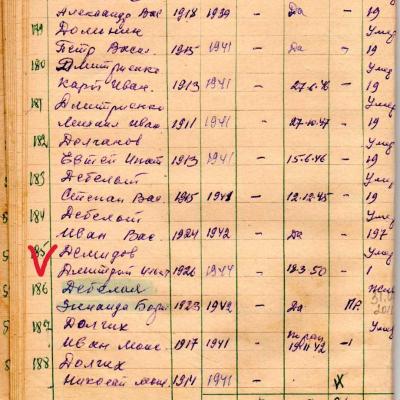 Александр Вас. 1918 1939 - Да - 19
179 Долинин Умер
Петр Васил. 1915 1941 - Да - 19
180 Дмитриенко Умер
Карп Иван. 1913 1941 - 27-6-46 - 19
181 Дмитриенко Умер
Михаил Иван. 1911 1941 - 27-10-47 - 19
182 Долганов Умер
Евтей Игнат 1913 1941 - 15-6-46 - 19
183 Дебелой Умер
Степан Вас. 1915 1941 - 12.12.45 - 19
184 Дебелой Умер
Иван Вас. 1924 1942 - Да - 197
185 Демидов Умер
Дмитрий Игнат 1926 1944 - 18-3-50 - 1
186 Дебелая
1923 1942 - Да ПР.
187 Долгих Умер
Иван Моис. 1917 1941 - 19-11-42 -
188 Долгих
Николай Моис. 1914 1941 -